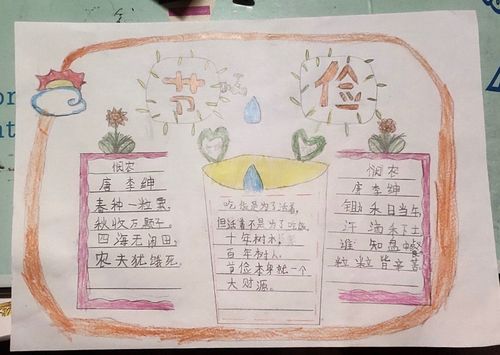 节
俭
悯农
唐 李绅
春种一粒粟,
秋收万颗子。
四海无闲田,
农夫犹饿死。
吃饭是为了活着,
但活着不是为了吃饭。
十年树木
百年树人。
节俭本身就一个
大财源。
悯农
唐 李绅
锄禾日当午,
汗滴禾下土
谁知盘中餐
粒粒皆辛苦